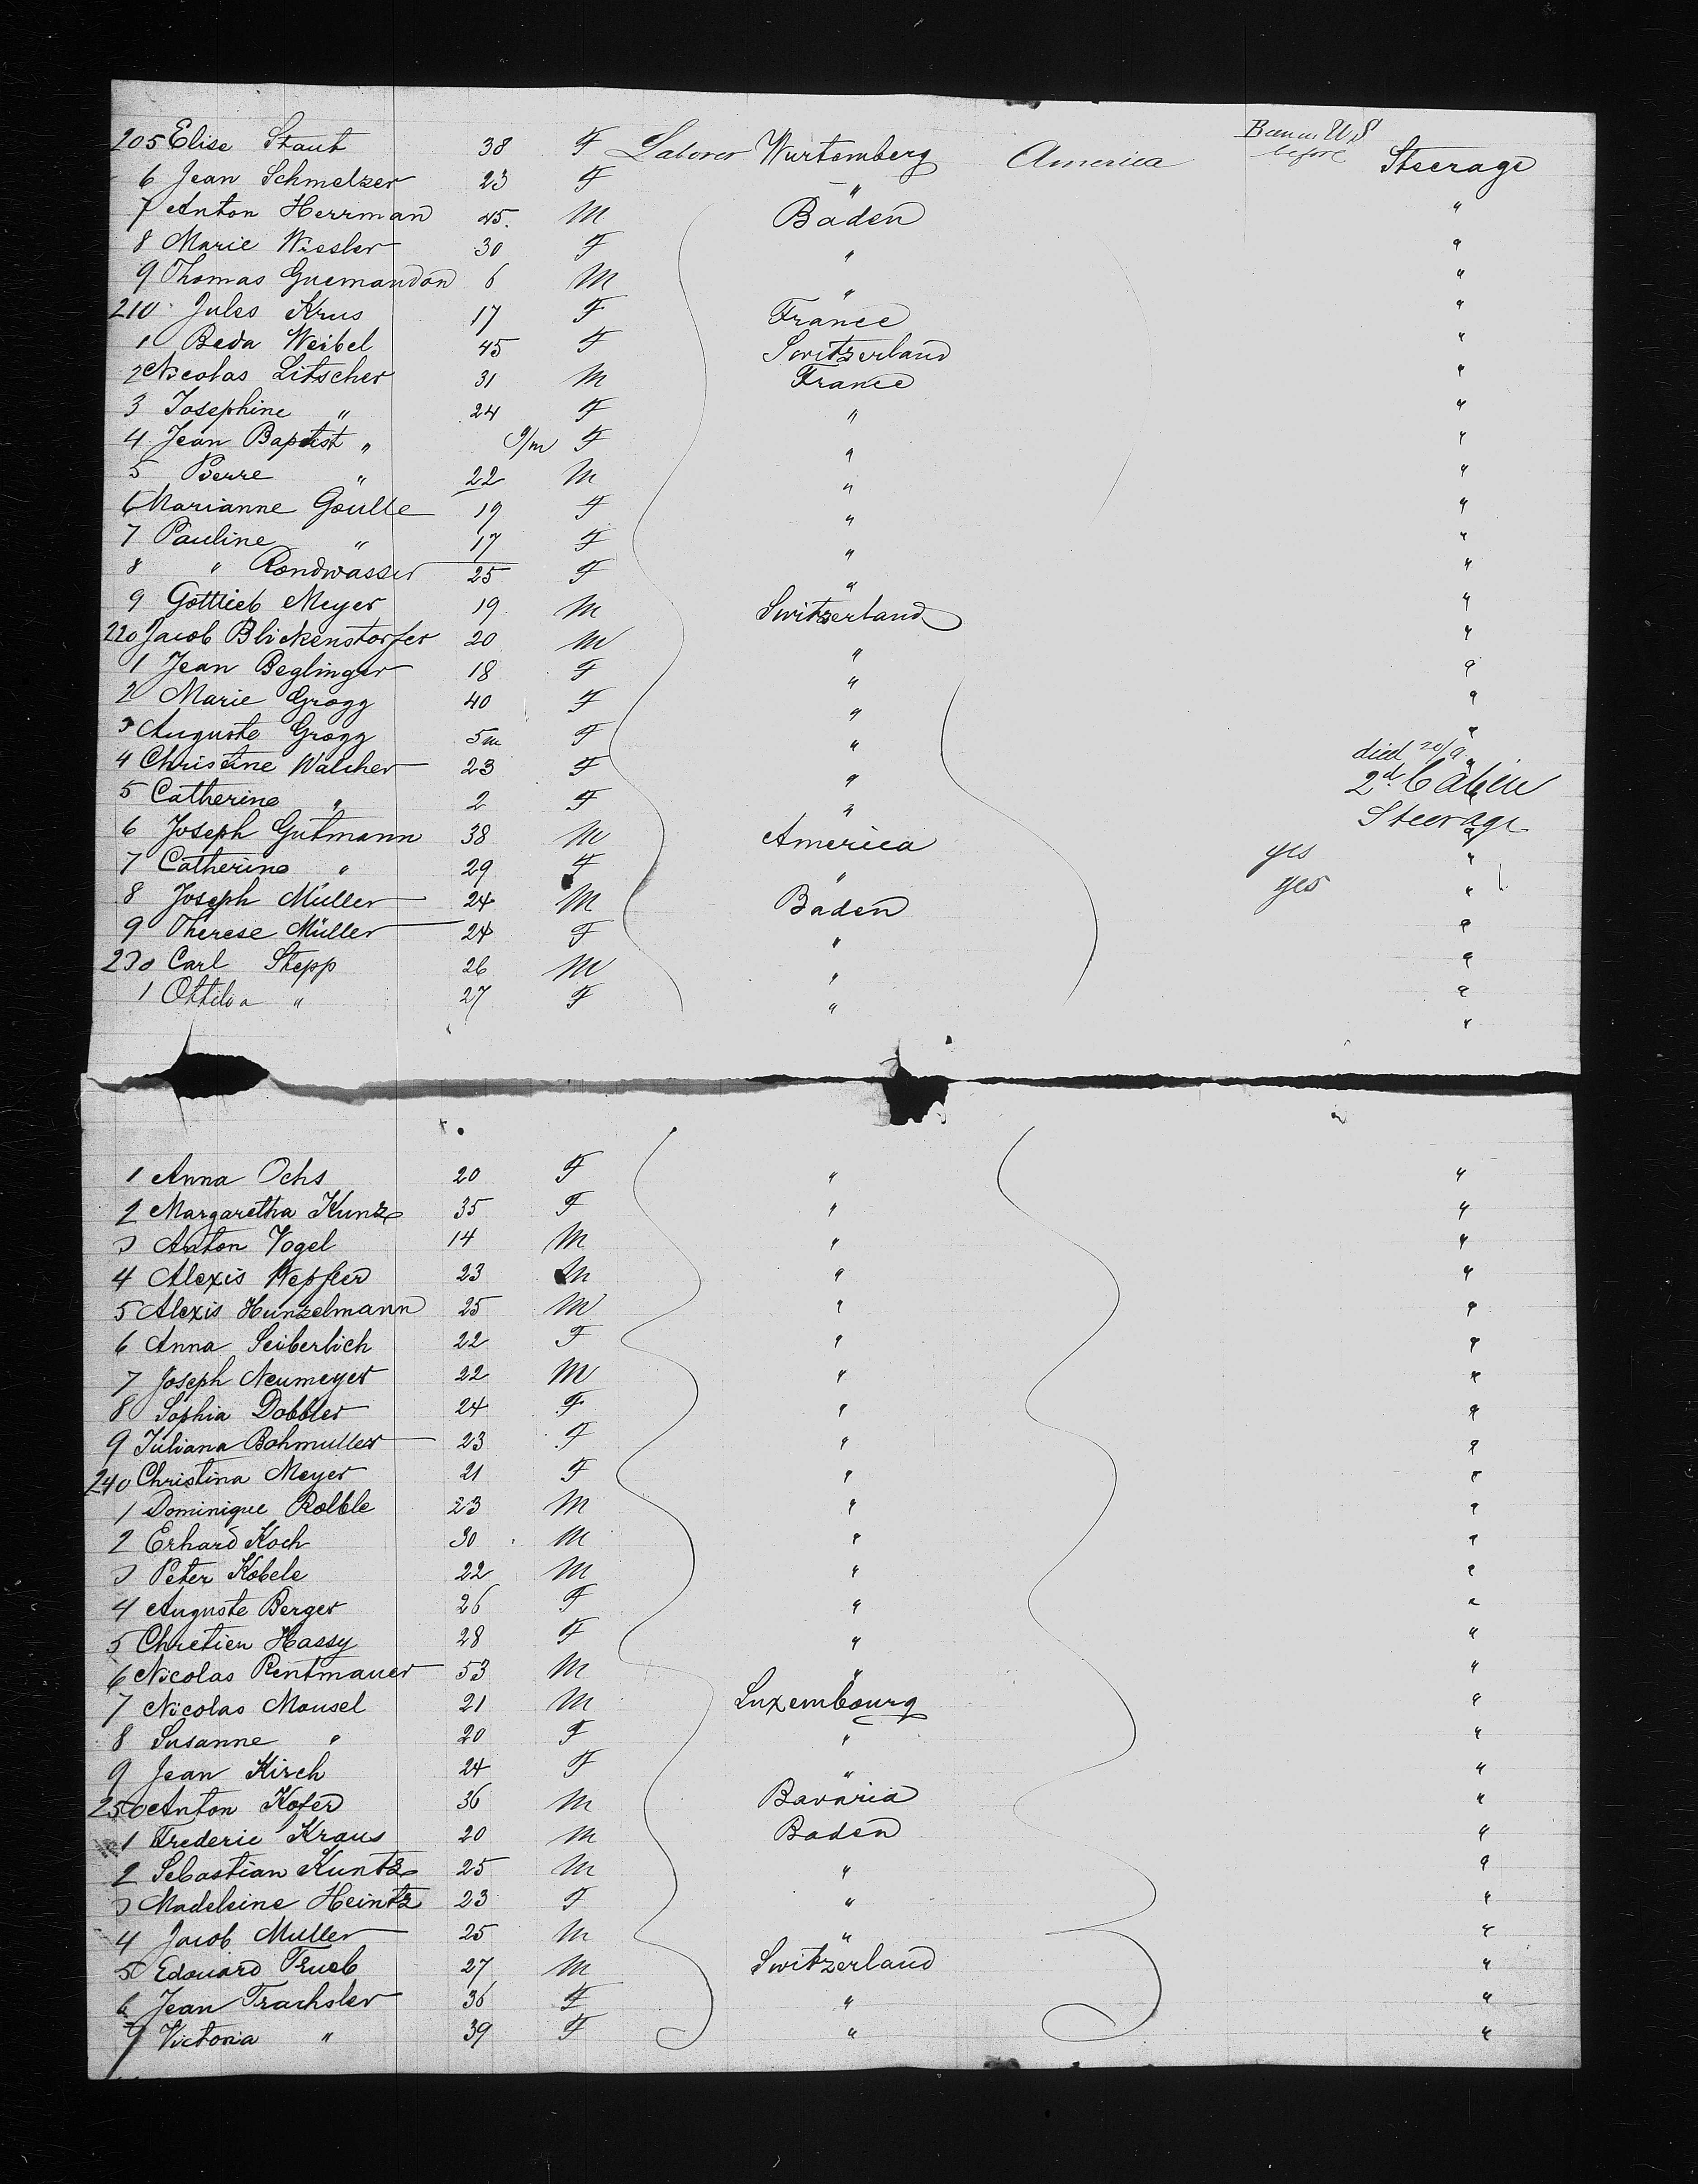 Been in U S before
205 Elise Staut 38 F Laborer Wurtemberg America Steerage
6 Jean Schmelzer 23 F " "
7 Anton Herrman 45. M Baden "
8 Marie Wiesler 30 F " "
9 Thomas Guemandon 6 M " "
210 Jules Krus 17 F France "
1 Beda Weibel 45 F Switzerland "
2 Nicolas Litscher 31 M France "
3 Josephine " 24 F " "
4 Jean Baptist " 9/m F " "
5 Pierre " 22 M " "
6 Marianne Goulle 19 F " "
7 Pauline " 17 F " "
8 " Rondwasser 25 F " "
9 Gottlieb Meyer 19 M Switzerland "
220 Jacob Blickenstorfer 20 M " "
1 Jean Beglinger 18 F " "
2 Marie Grogg 40 F " "
3 Auguste Grogg 5m F " died 20/9 "
4 Christine Walcher 23 F " 2d Cabin
5 Catherine " 2 F " Steerage
6 Joseph Gutmann 38 M America yes "
7 Catherine " 29 F " yes "
8 Joseph Müller 24 M Baden "
9 Therese Müller 24 F " "
230 Carl Stepp 26 M " "
1 Ottilia " 27 F " "
1 Anna Ochs 20 F " "
2 Margaretha Kunz 35 F " "
3 Anton Vogel 14 M " "
4 Alexis Wepfler 23 M " "
5 Alexis Hunzelmann 25 M " "
6 Anna Seiberlich 22 F " "
7 Joseph Neumeyer 22 M " "
8 Sophia Dobbler 24 F " "
9 Juliana Bohmuller 23 F " "
240 Christina Meyer 21 F " "
1 Dominique Rolble 23 M " "
2 Erhard Koch 30 M " "
3 Peter Kobele 22 M " "
4 Auguste Berger 26 F " "
5 Chretien Hassy 28 F " "
6 Nicolas Rentmauer 53 M " "
7 Nicolas Mousel 21 M Luxembourg "
8 Susanne " 20 F " "
9 Jean Kirch 24 F " "
250 Anton Kofer 36 M Bavaria "
1 Frederic Kraus 20 M Baden "
2 Sebastian Kuntz 25 M " "
3 Madeleine Heintz 23 F " "
4 Jacob Muller 25 M " "
5 Edouard Trueb 27 M Switzerland "
6 Jean Trachsler 36 F " "
7 Victoria " 39 F " "